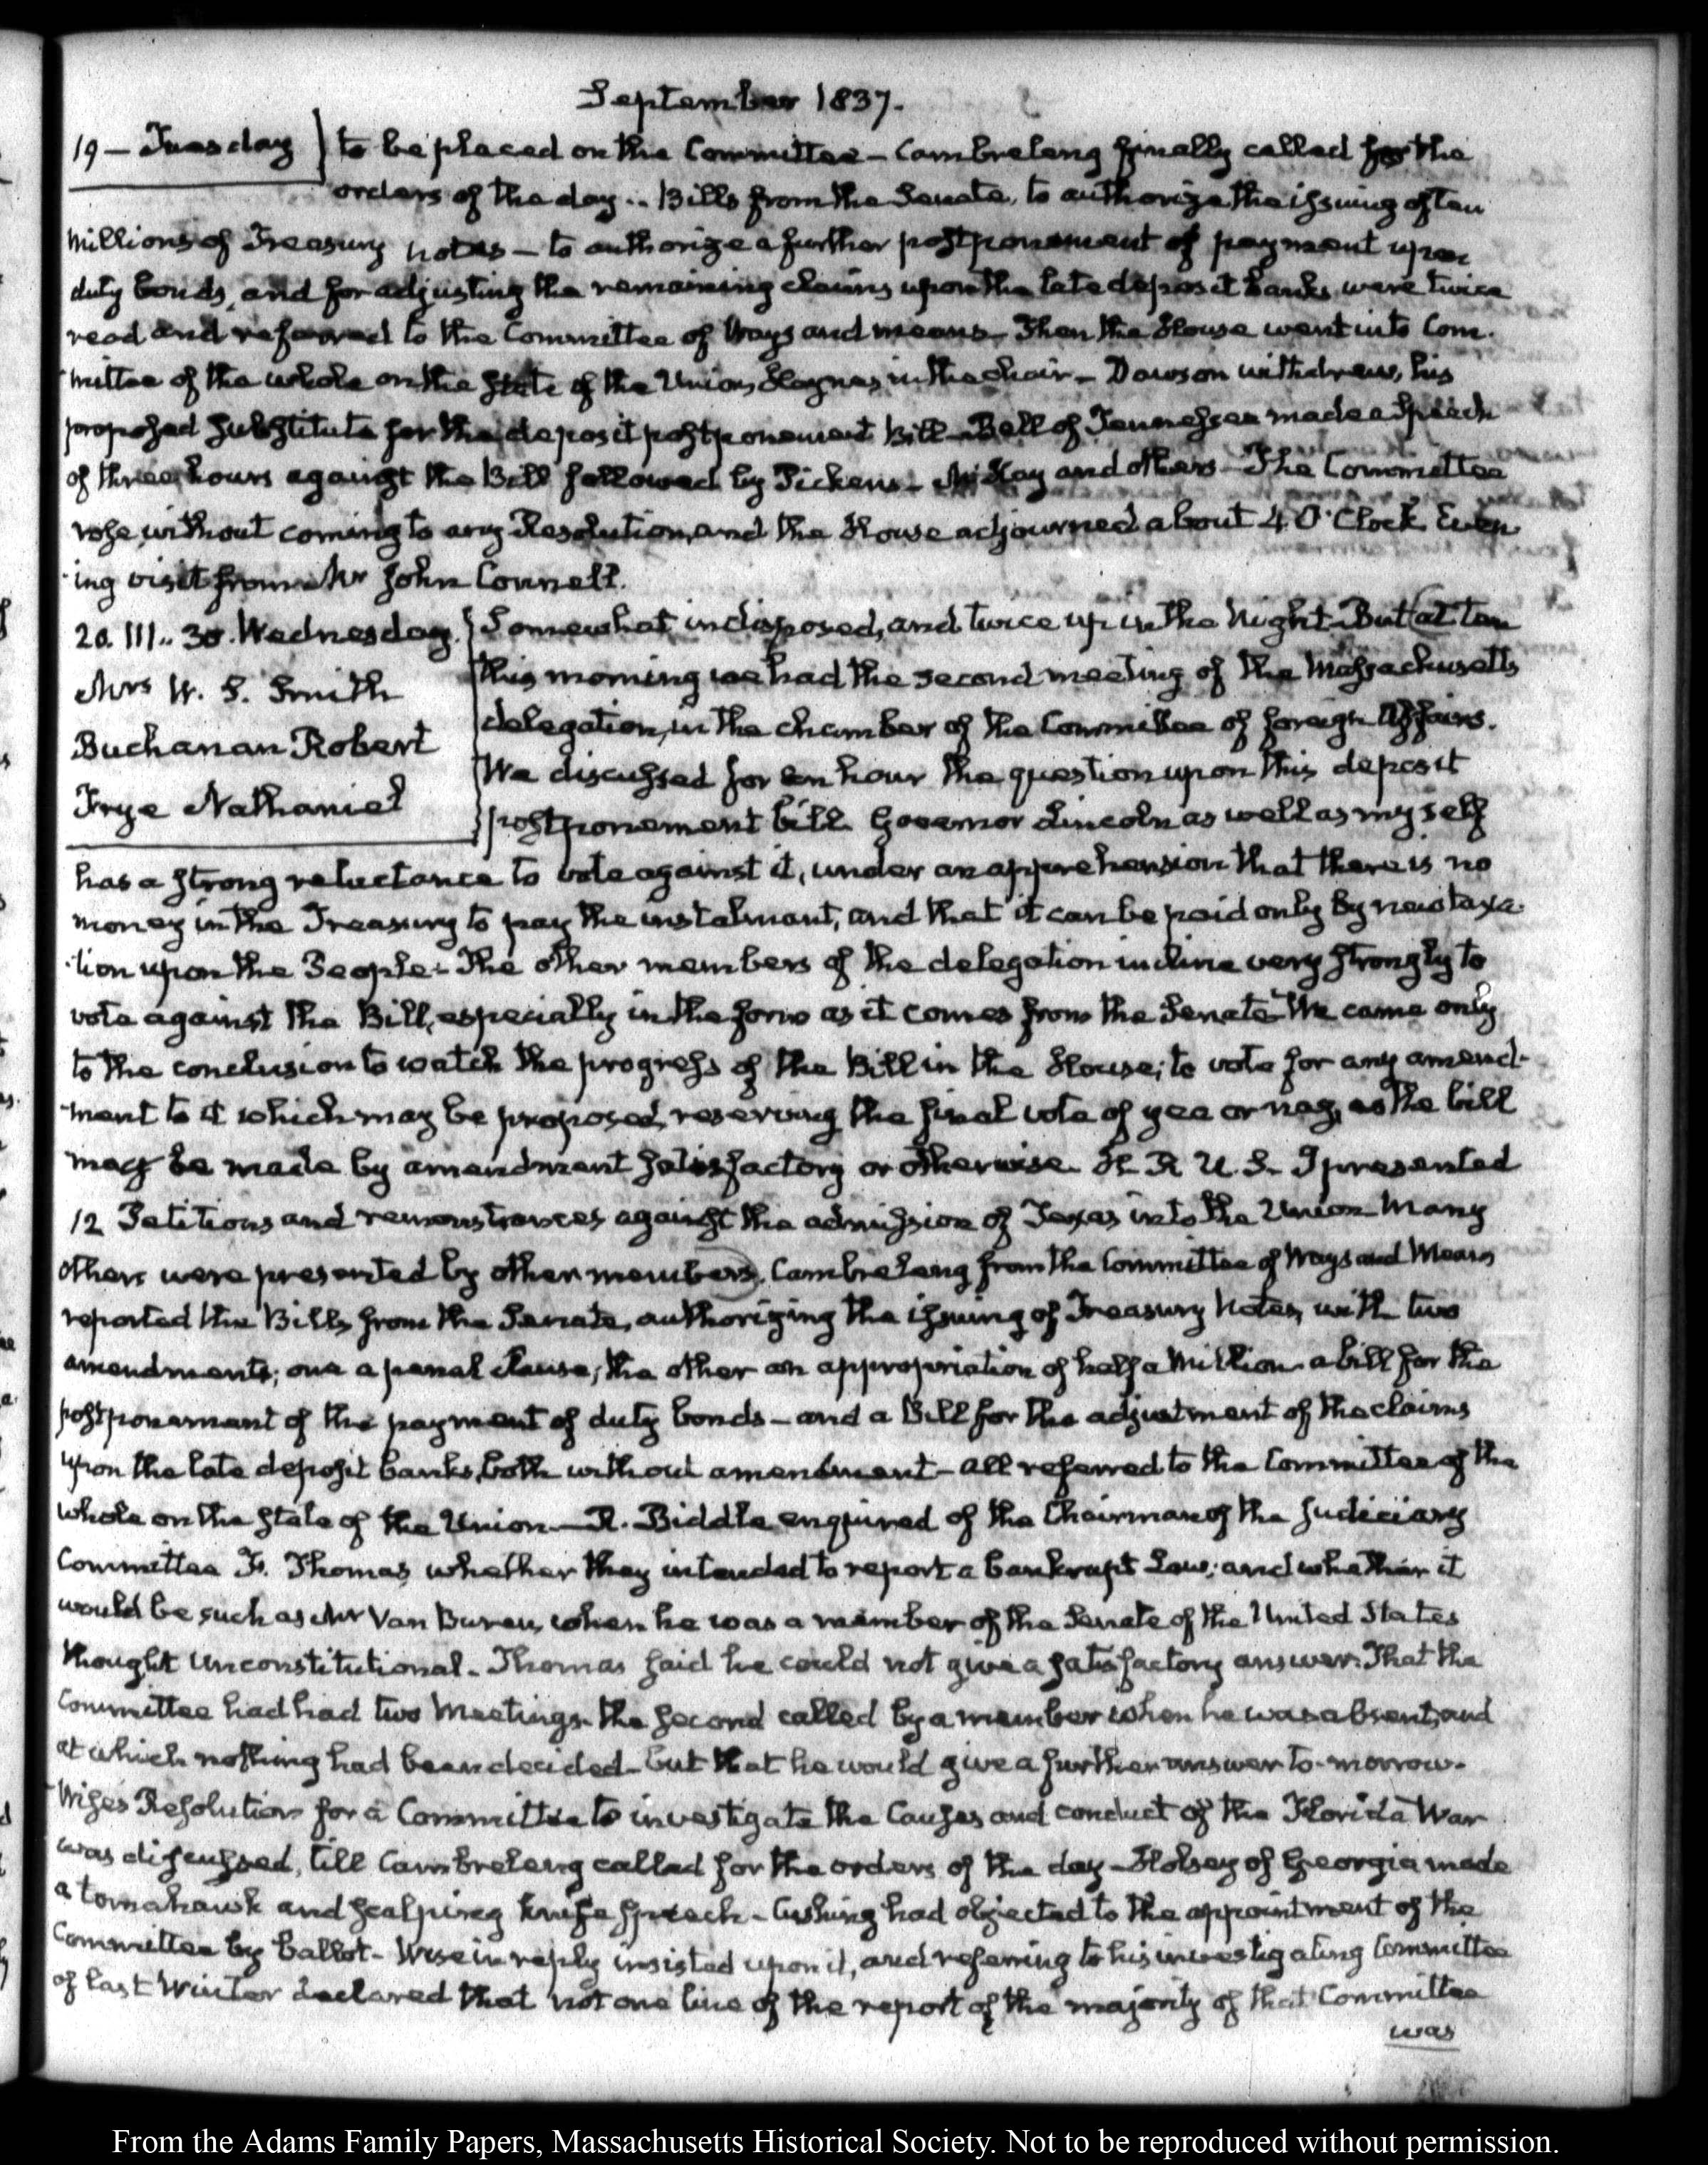 September 1837.
19 — Tuesday
to be placed on the Committee — Cambreleng finally called for the
orders of the day .. Bills from the Senate, to authorize the issuing of ten
millions of Treasury notes — to authorize a further postponement of payment upon
duty bonds, and for adjusting the remaining claims upon the late deposit banks were twice
read and referred to the Committee of Ways and means — Then the House went into Com-
mittee of the whole on the State of the Union, Haynes in the chair — Dawson withdrew, his
proposed substitute for the deposit postponement Bill — Bell of Tennessee made a Speech
of three hours against the Bill followed by Pickens — McKay and others — The Committee
rose, without coming to any Resolution, and the House adjourned about 4 O'Clock Even-
ing visit from Mr John Connell.
20. III.. 30. Wednesday.
Mrs W. S. Smith
Buchanan Robert
Frye Nathaniel
Somewhat indisposed, and twice up in the Night. But at ten
this morning we had the second meeting of the Massachusetts
delegation, in the chamber of the Committee of foreign Affairs.
We discussed for an hour the question upon this deposit
postponement bill. Governor Lincoln as well as myself
has a strong reluctance to vote against it, under an apprehension that there is no
money in the Treasury to pay the instalment, and that it can be paid only by new taxa-
tion upon the People. The other members of the delegation incline very strongly to
vote against the Bill, especially in the form as it comes from the Senate. We came only
to the conclusion to watch the progress of the Bill in the House; to vote for any amend-
ment to it which may be proposed, reserving the final vote of yea or nay, as the bill
may be made by amendment satisfactory or otherwise. H. R. U. S. I presented
12 Petitions and remonstrances against the admission of Texas into the Union — Many
others were presented by other members. Cambreleng from the Committee of Ways and Means
reported the Bills from the Senate, authorizing the issuing of Treasury Notes, with two
amendments; one a penal clause; the other an appropriation of half a Million — a bill for the
postponement of the payment of duty bonds — and a Bill for the adjustment of the claims
upon the late deposit banks, both without amendment — all referred to the Committee of the
whole on the State of the Union — R. Biddle enquired of the Chairman of the Judiciary
Committee F. Thomas, whether they intended to report a bankrupt Law; and whether it
would be such as Mr Van Buren, when he was a member of the Senate of the United States
thought Unconstitutional. Thomas said he could not give a satisfactory answer. That the
Committee had had two Meetings — the second called by a member when he was absent, and
at which nothing had been decided — but that he would give a further answer to-morrow.
Wise's Resolution for a Committee to investigate the Causes and conduct of the Florida War
was discussed, till Cambreleng called for the orders of the day — Holsey of Georgia made
a tomahawk and scalping knife speech — Cushing had objected to the appointment of the
Committee by ballot — Wise in reply insisted upon it, and referring to his investigating Committee
of last Winter declared that not one line of the report of the majority of that Committee
was
From the Adams Family Papers, Massachusetts Historical Society. Not to be reproduced without permission.